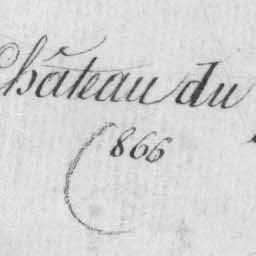 Château du
(866